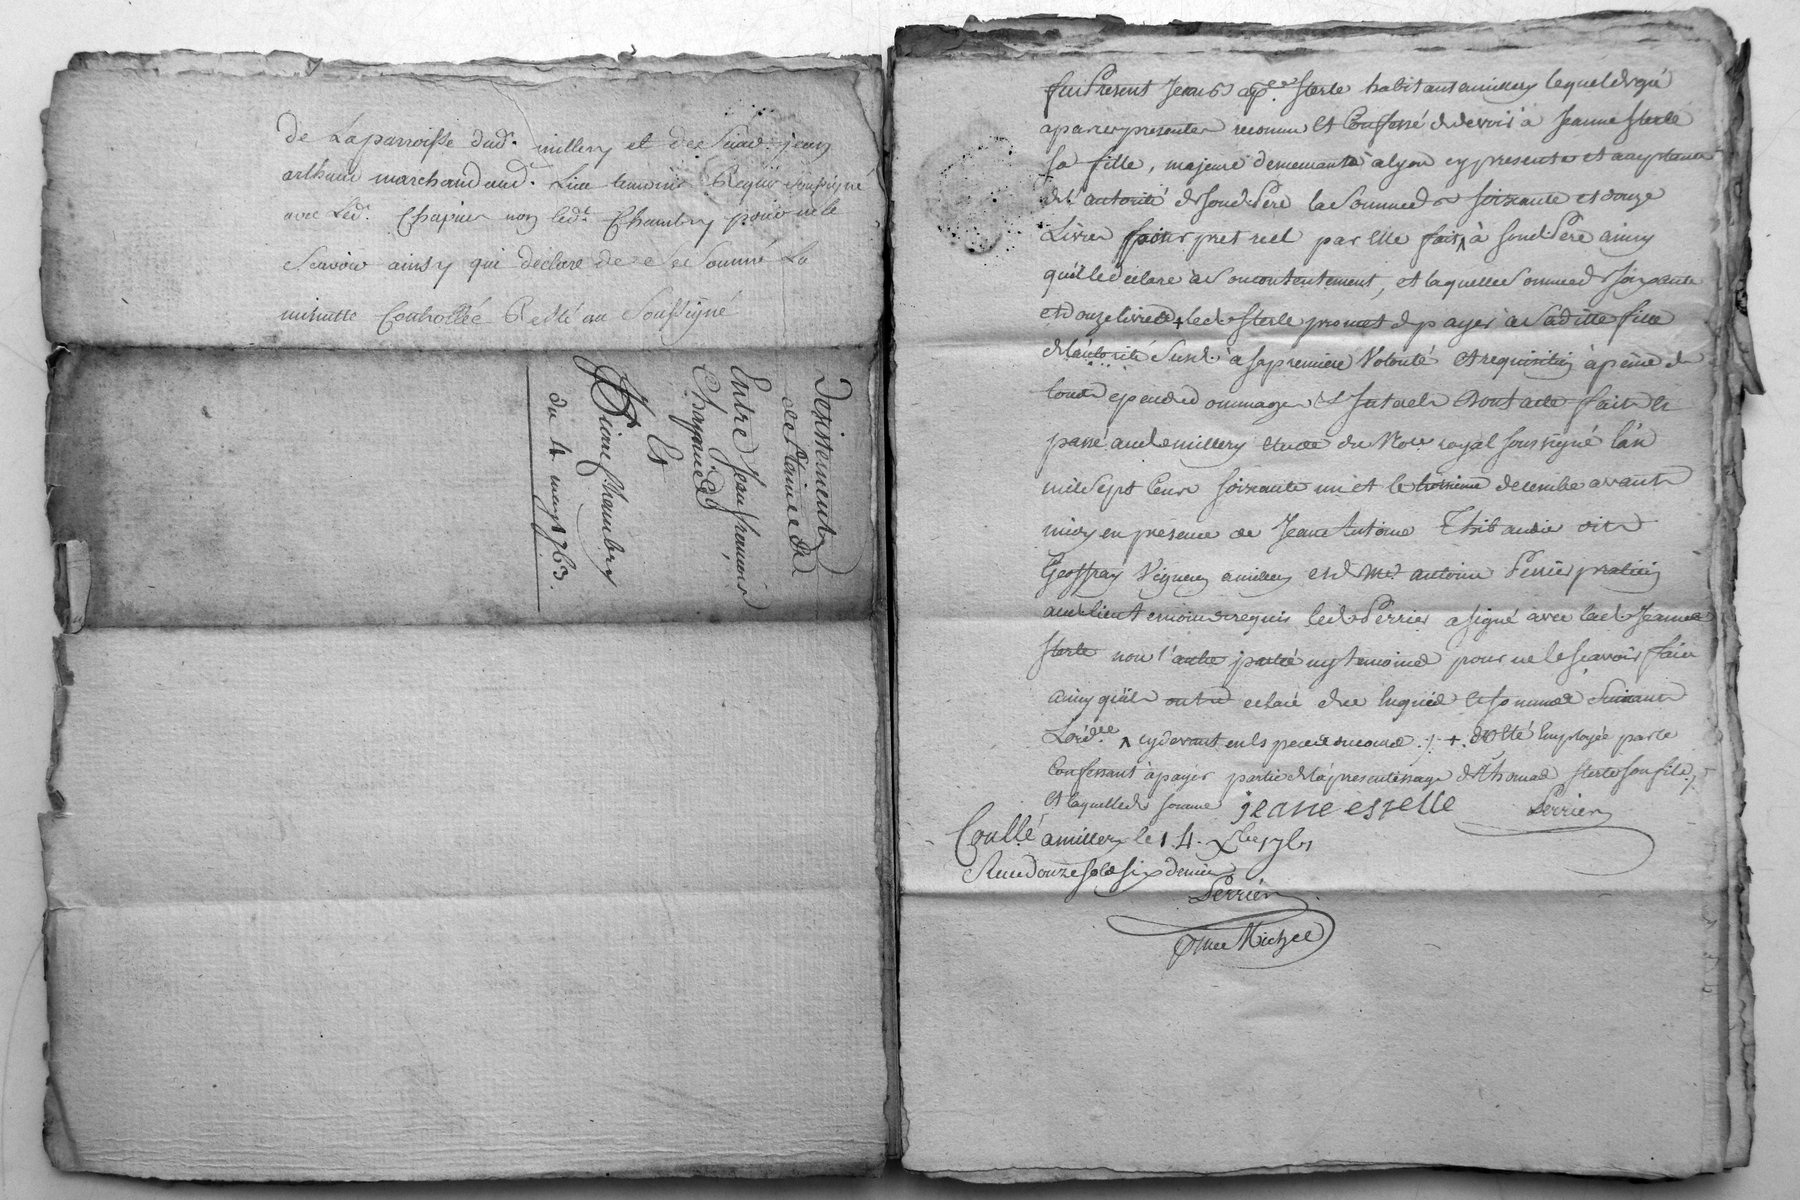 De Laparroisse dud. millery et de Sieur jean
arthaud marchand aud. Lieu temoins Requis soussigné
avec Led. Chapuis non led. Chambry pour ne le
Scavoir ainsy qui declare de ce Sommé La
minutte Controllée Resté au Soussigné
Desistement
de plainte de
Entre Jean francois
Et
Pierre Chambry
du 4 may 1763.
fut Present Jean Sterle habitant a millery lequel de gré
apar ces presentes reconnu et Confessé devoir à Jeanne Sterle
sa fille, majeure demeurante à lyon cy presente et acceptante
de l'autorité de sond Pere la Somme de soixante et douze
Livres pour pret reel par elle fait ^ à sond Pere ainsy
qu'il le declare a son contentement, et laquelle Somme de soixante
et douze livres + led. Sterle promet de payer a Saditte fille
de l'autorité Susd. à sa premiere Volonté et requisition à peine de
tous depens dommages et Interets Dont acte fait et
passé aud. millery etude du Nore royal soussigné l'an
mil Sept Cent soixante un et le troisieme decembre avant
midy en presence de Jean Antoine Thibaudie dit
Geoffray Vigneron a millery et de Me. antoine Perrier praticien
aud. lieu temoins requis led. Perrier a signé avec lad. Jeanne
Sterle non l'autre partie ny temoins pour ne le scavoir faire
ainsy qu'ils ont declaré de ce enquis et sommés Suivant
Lord.ce ^ cy devant en especes sonnantes + d'elté Employée par le
Confessant à payer partie de l'apprentissage de thomas Sterle son fils,
et laquelle somme jeane estelle Perrier
Conllé a millery le 14. Xbre 1761
Recu douze sols six deniers
Perrier